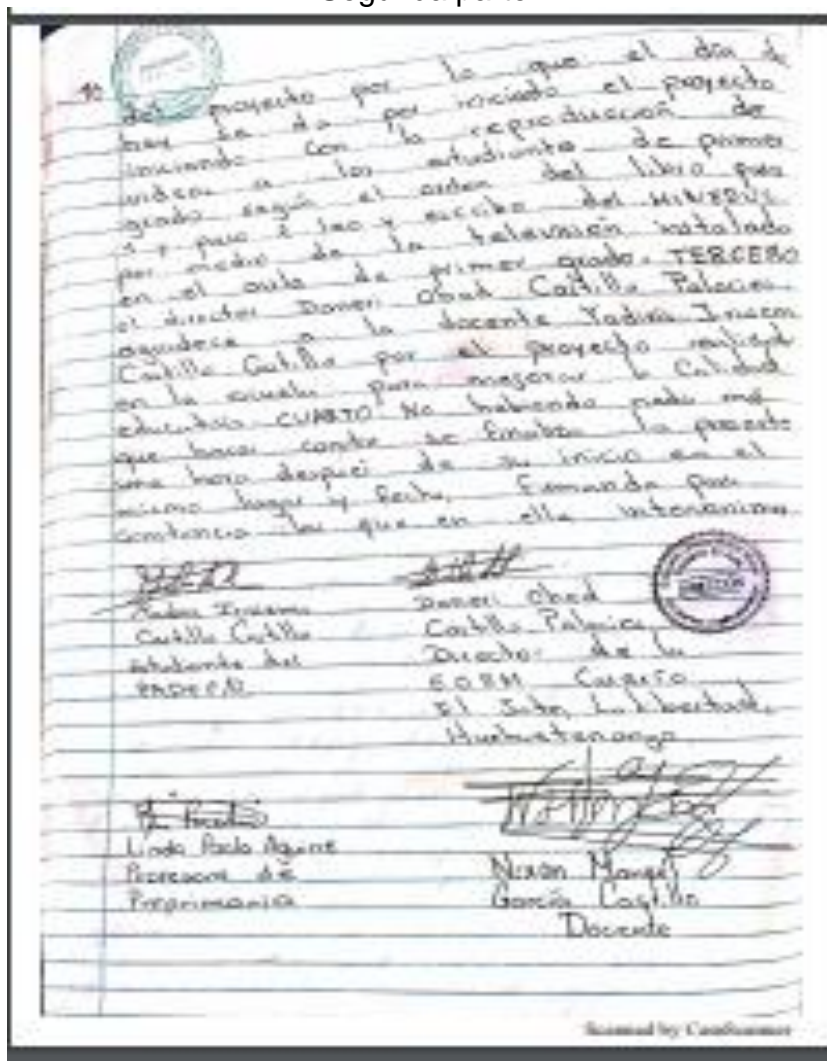 Segunda parte
del proyecto por lo que el día de
hoy se da por iniciado el proyecto
iniciando con la reproducción de
videos a los estudiantes de primer
grado según el orden del libro
paso a leo y escribo del
por medio de la televisión instalado
en el aula de primer grado. TERCERO
el director Daneri Obed Castillo Palacios
agradece a la docente Yadira
Castillo Castillo por el proyecto
en la escuela para mejorar la Calidad
educativa CUARTO No habiendo nada más
que hacer constar se finaliza la presente
una hora después de su inicio en el
mismo lugar y fecha, Firmando para
constancia los que en ella
Castillo Castillo
estudiante del
PADEP/D
Daneri Obed
Castillo Palacios
Director de la
EORM Caserío
La Libertad,
Huehuetenango
Linda Paola Aguirre
Profesora de
Preprimaria
Nixon
García Castillo
Docente
Scanned by CamScanner